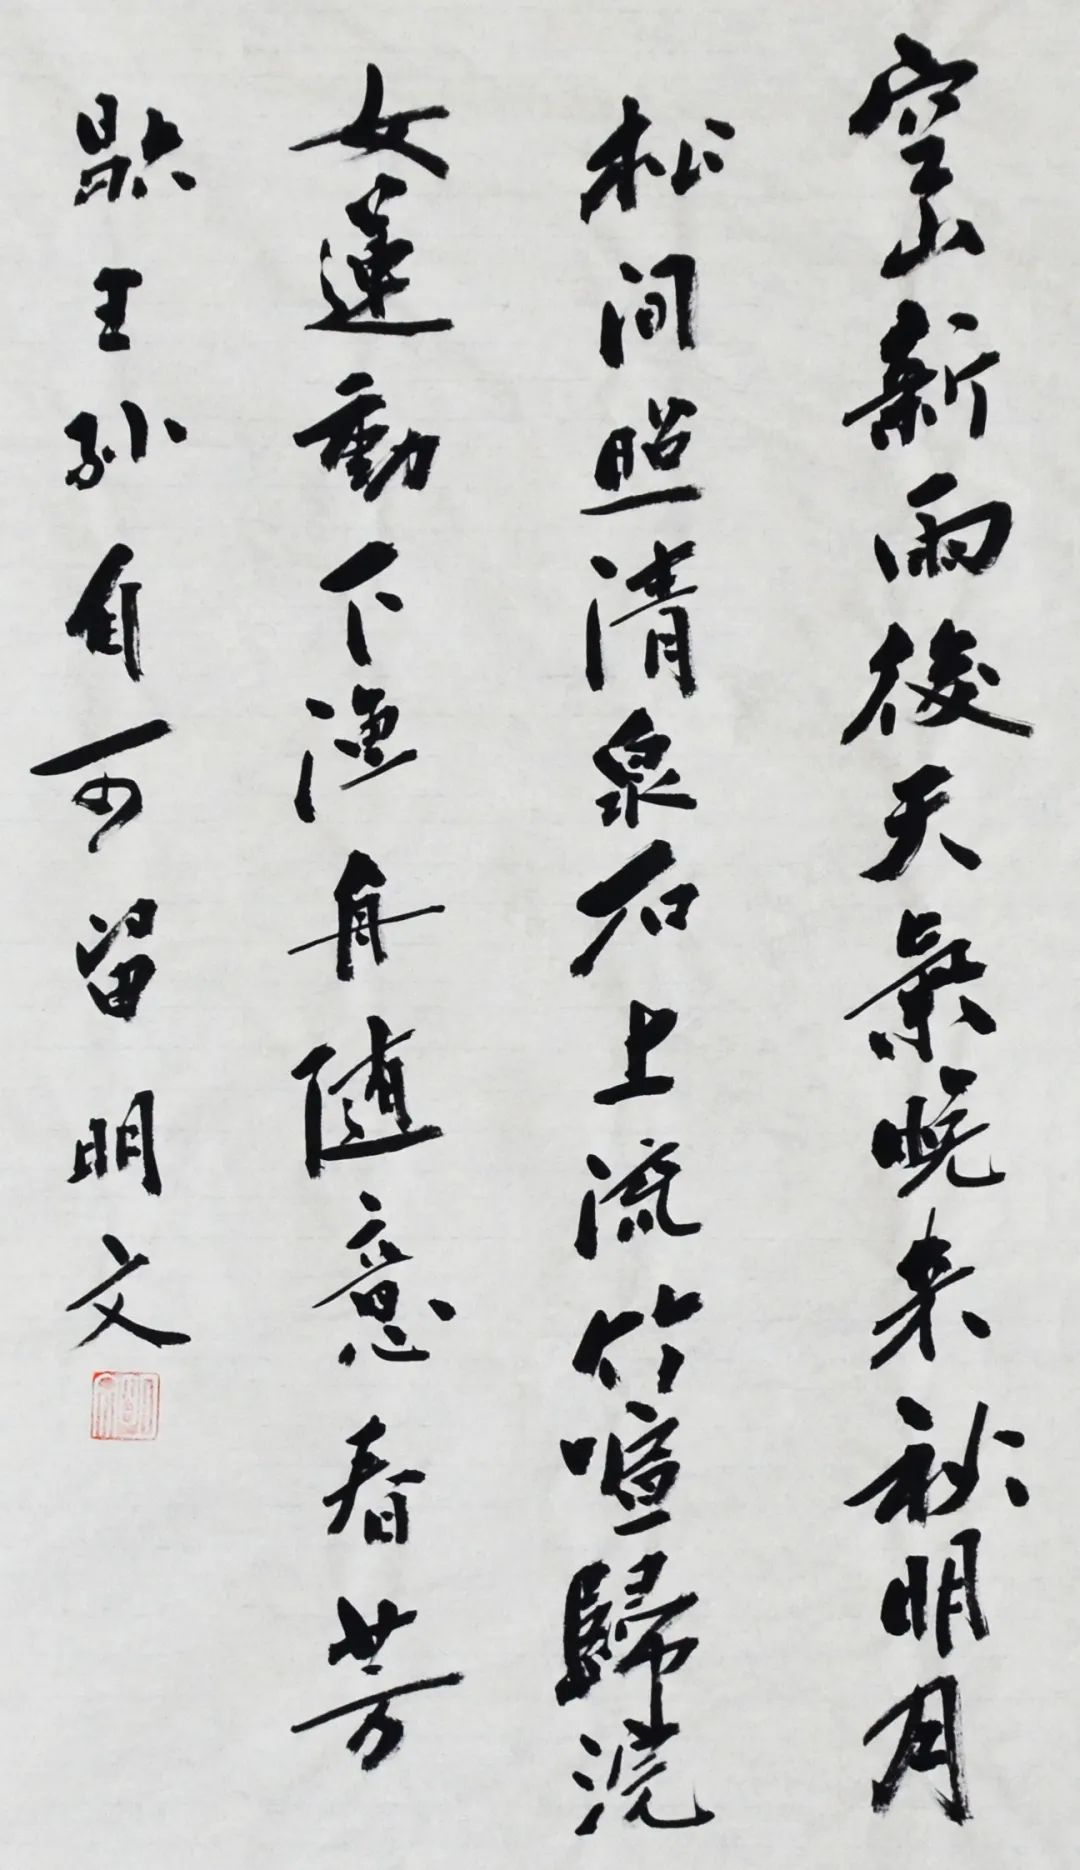 空山新雨後天氣晚来秋明月
松间照清泉石上流竹喧歸浣
女蓮動下渔舟随意春芳
歇王孙自可留明文